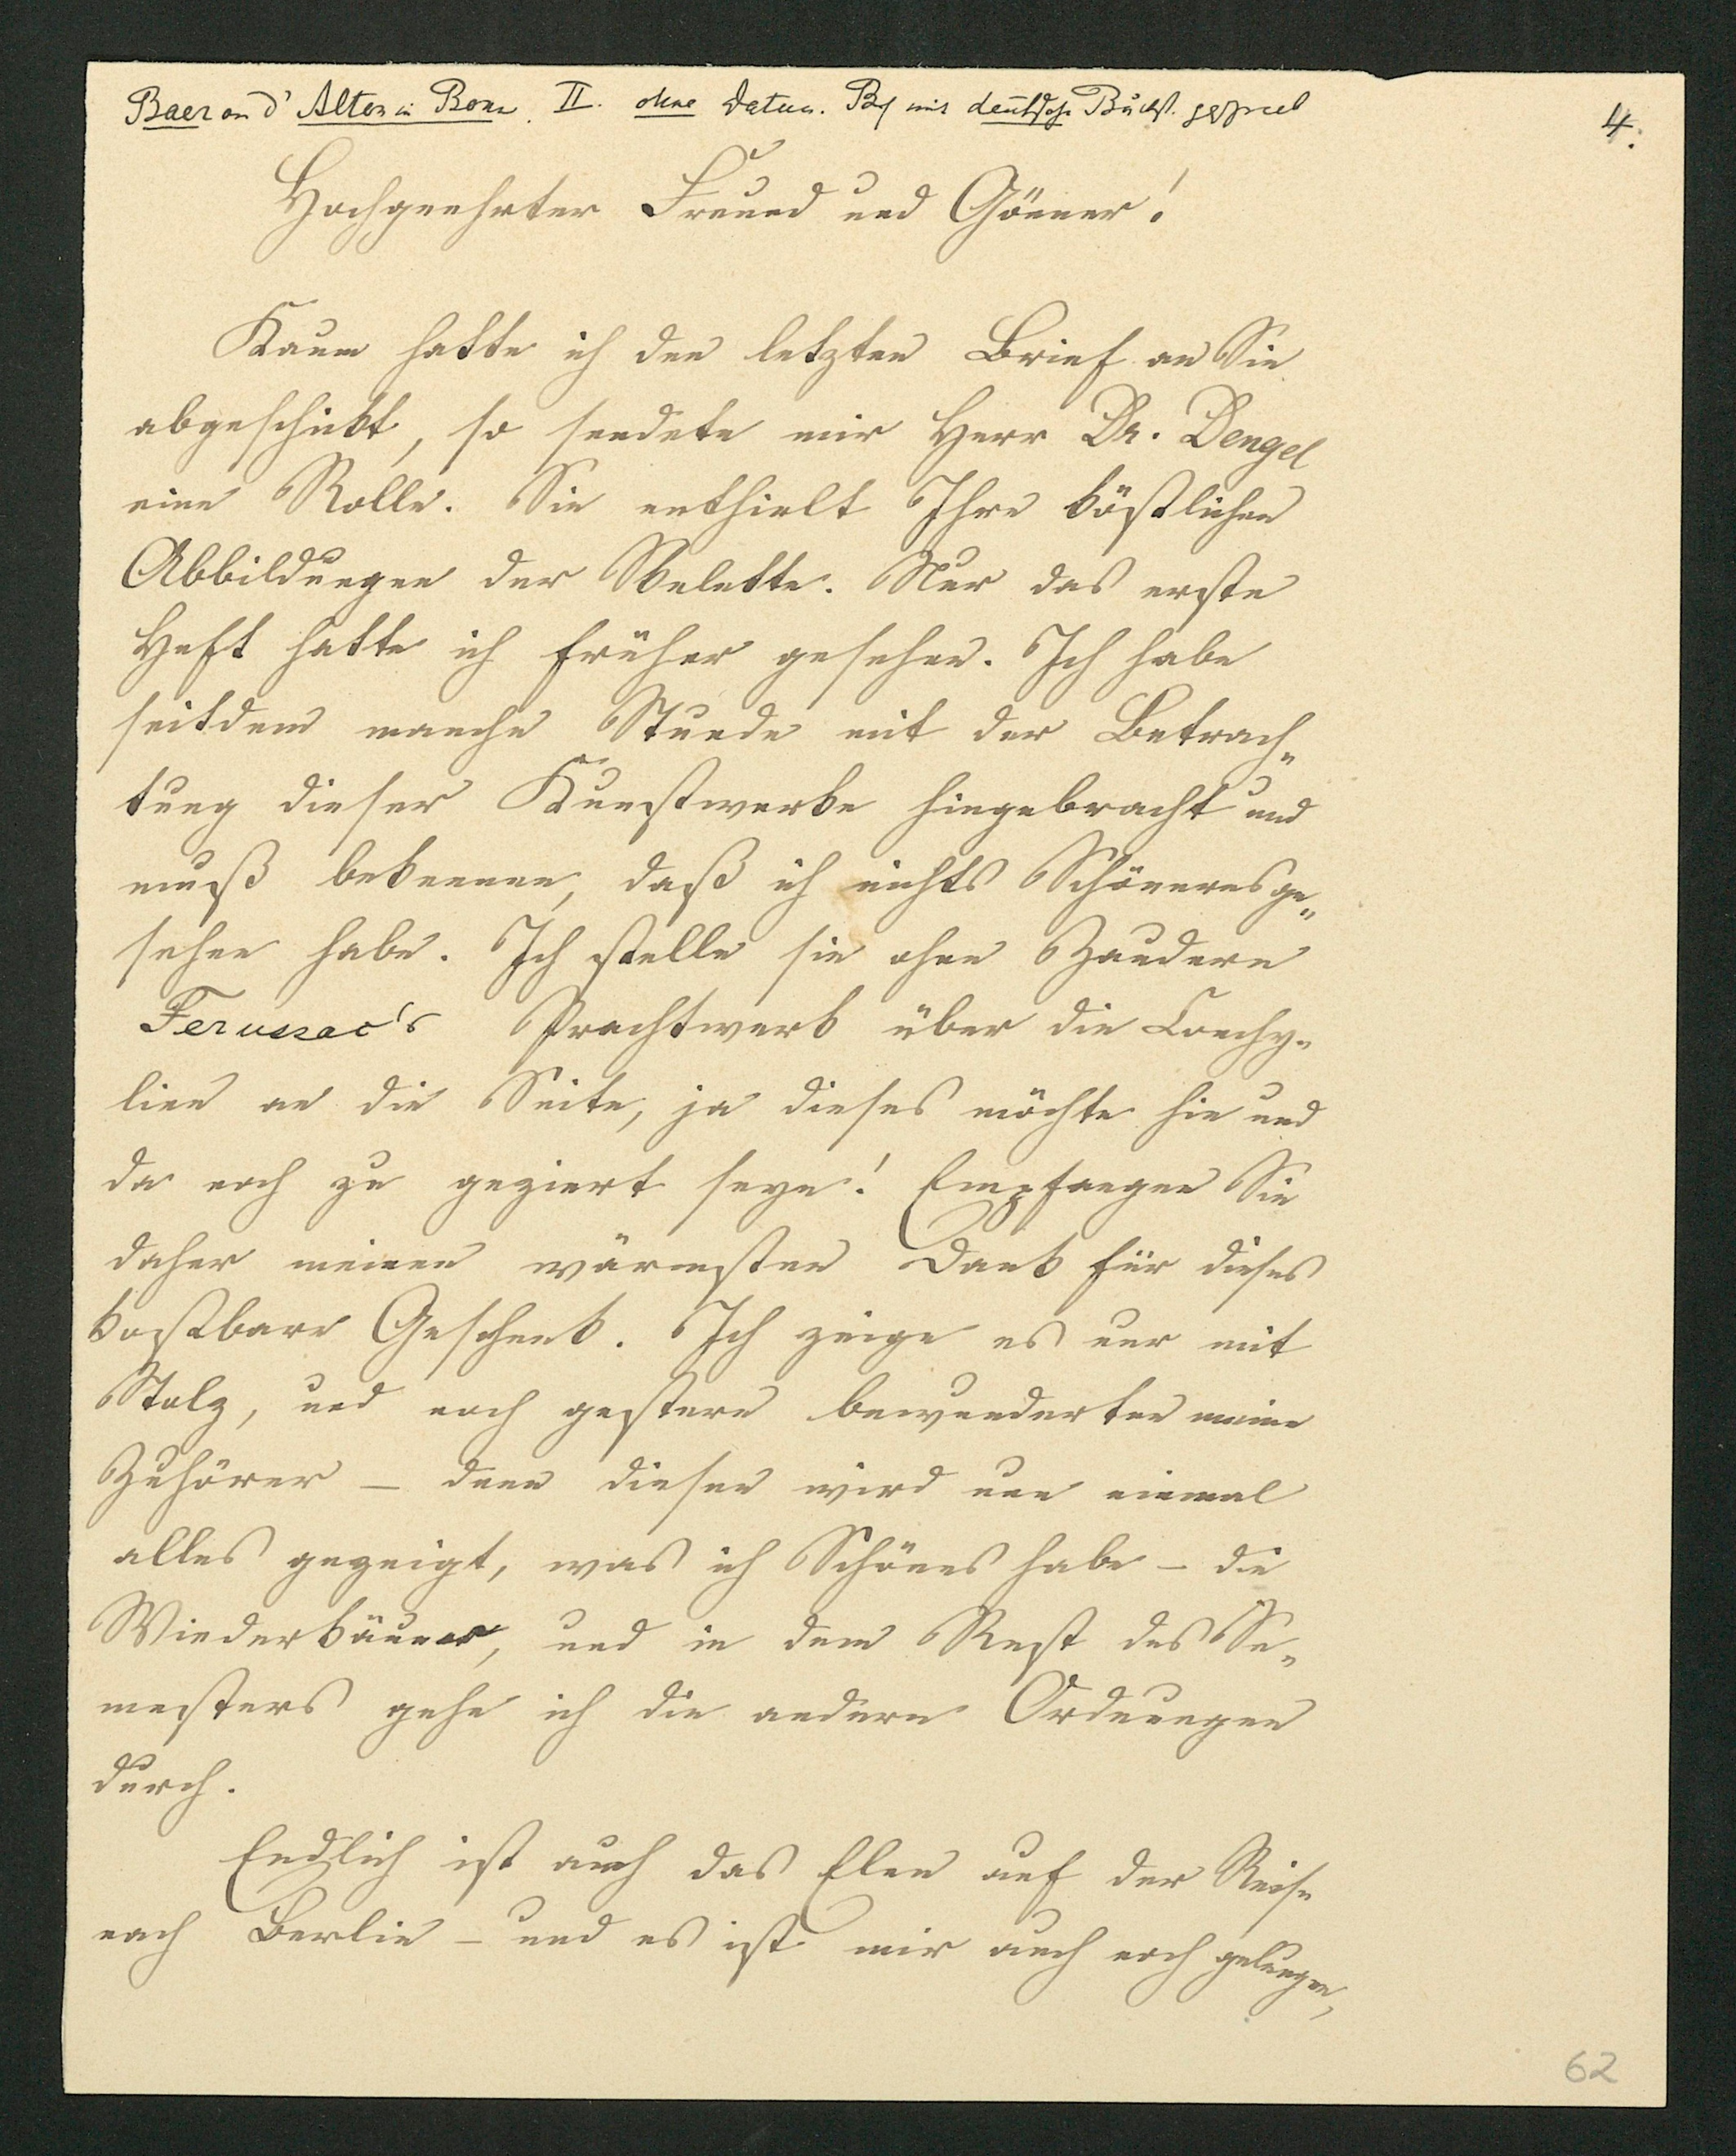 Baer an d'Alton in Bonn. II. ohne Datum. Brf mit deutsche Buchst.
4.
Hochgeehrter Freund und Gönner!
Kaum hatte ich den letzten Brief an Sie
abgeschickt, so sendete mir Herr Dr. Dengel
eine Rolle. Sie enthielt Ihre köstlichen
Abbildungen der Skelette. Nur das erste
Heft hatte ich früher gesehen. Ich habe
seitdem manche Stunde mit der Betrach-
tung dieser Kunstwerke hingebracht und
muß bekennen, daß ich nichts Schöneres ge-
sehen habe. Ich stelle sie ohne Zaudern
Ferussac's Prachtwerk über die Conchy-
lien an die Seite, ja dieses möchte hie und
da noch zu geziert seyn! Empfangen Sie
daher meinen wärmsten Dank für dieses
kostbare Geschenk. Ich zeige es nur mit
Stolz, und noch gestern bewunderten meine
Zuhörer – denn diesen wird nun einmal
alles gezeigt, was ich Schönes habe – die
Wiederkäuer, und in dem Rest des Se-
mesters gehe ich die andern Ordnungen
durch.
Endlich ist auch das Elen auf der Reise
nach Berlin – und es ist mir auch noch gelungen,
62